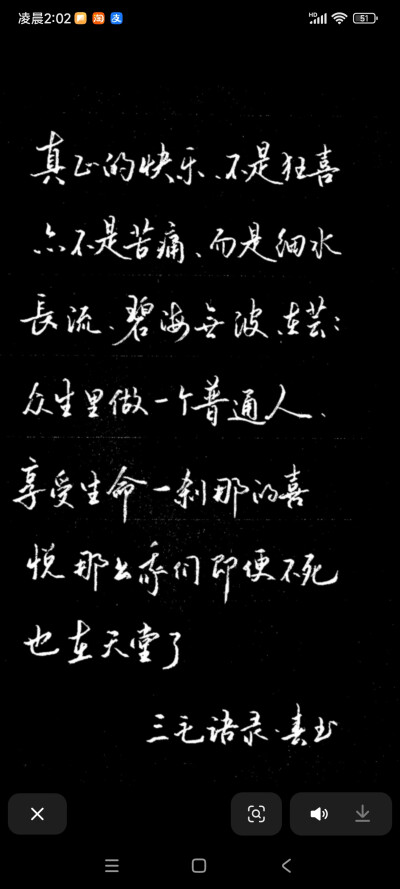 凌晨2:02
HD
51
真正的快乐、不是狂喜
亦不是苦痛、而是细水
長流、碧海无波、在芸:
众生里做一个普通人、
享受生命一刹那的喜
悦 那么我们即便不死
也在天堂了
三毛语录·春玉